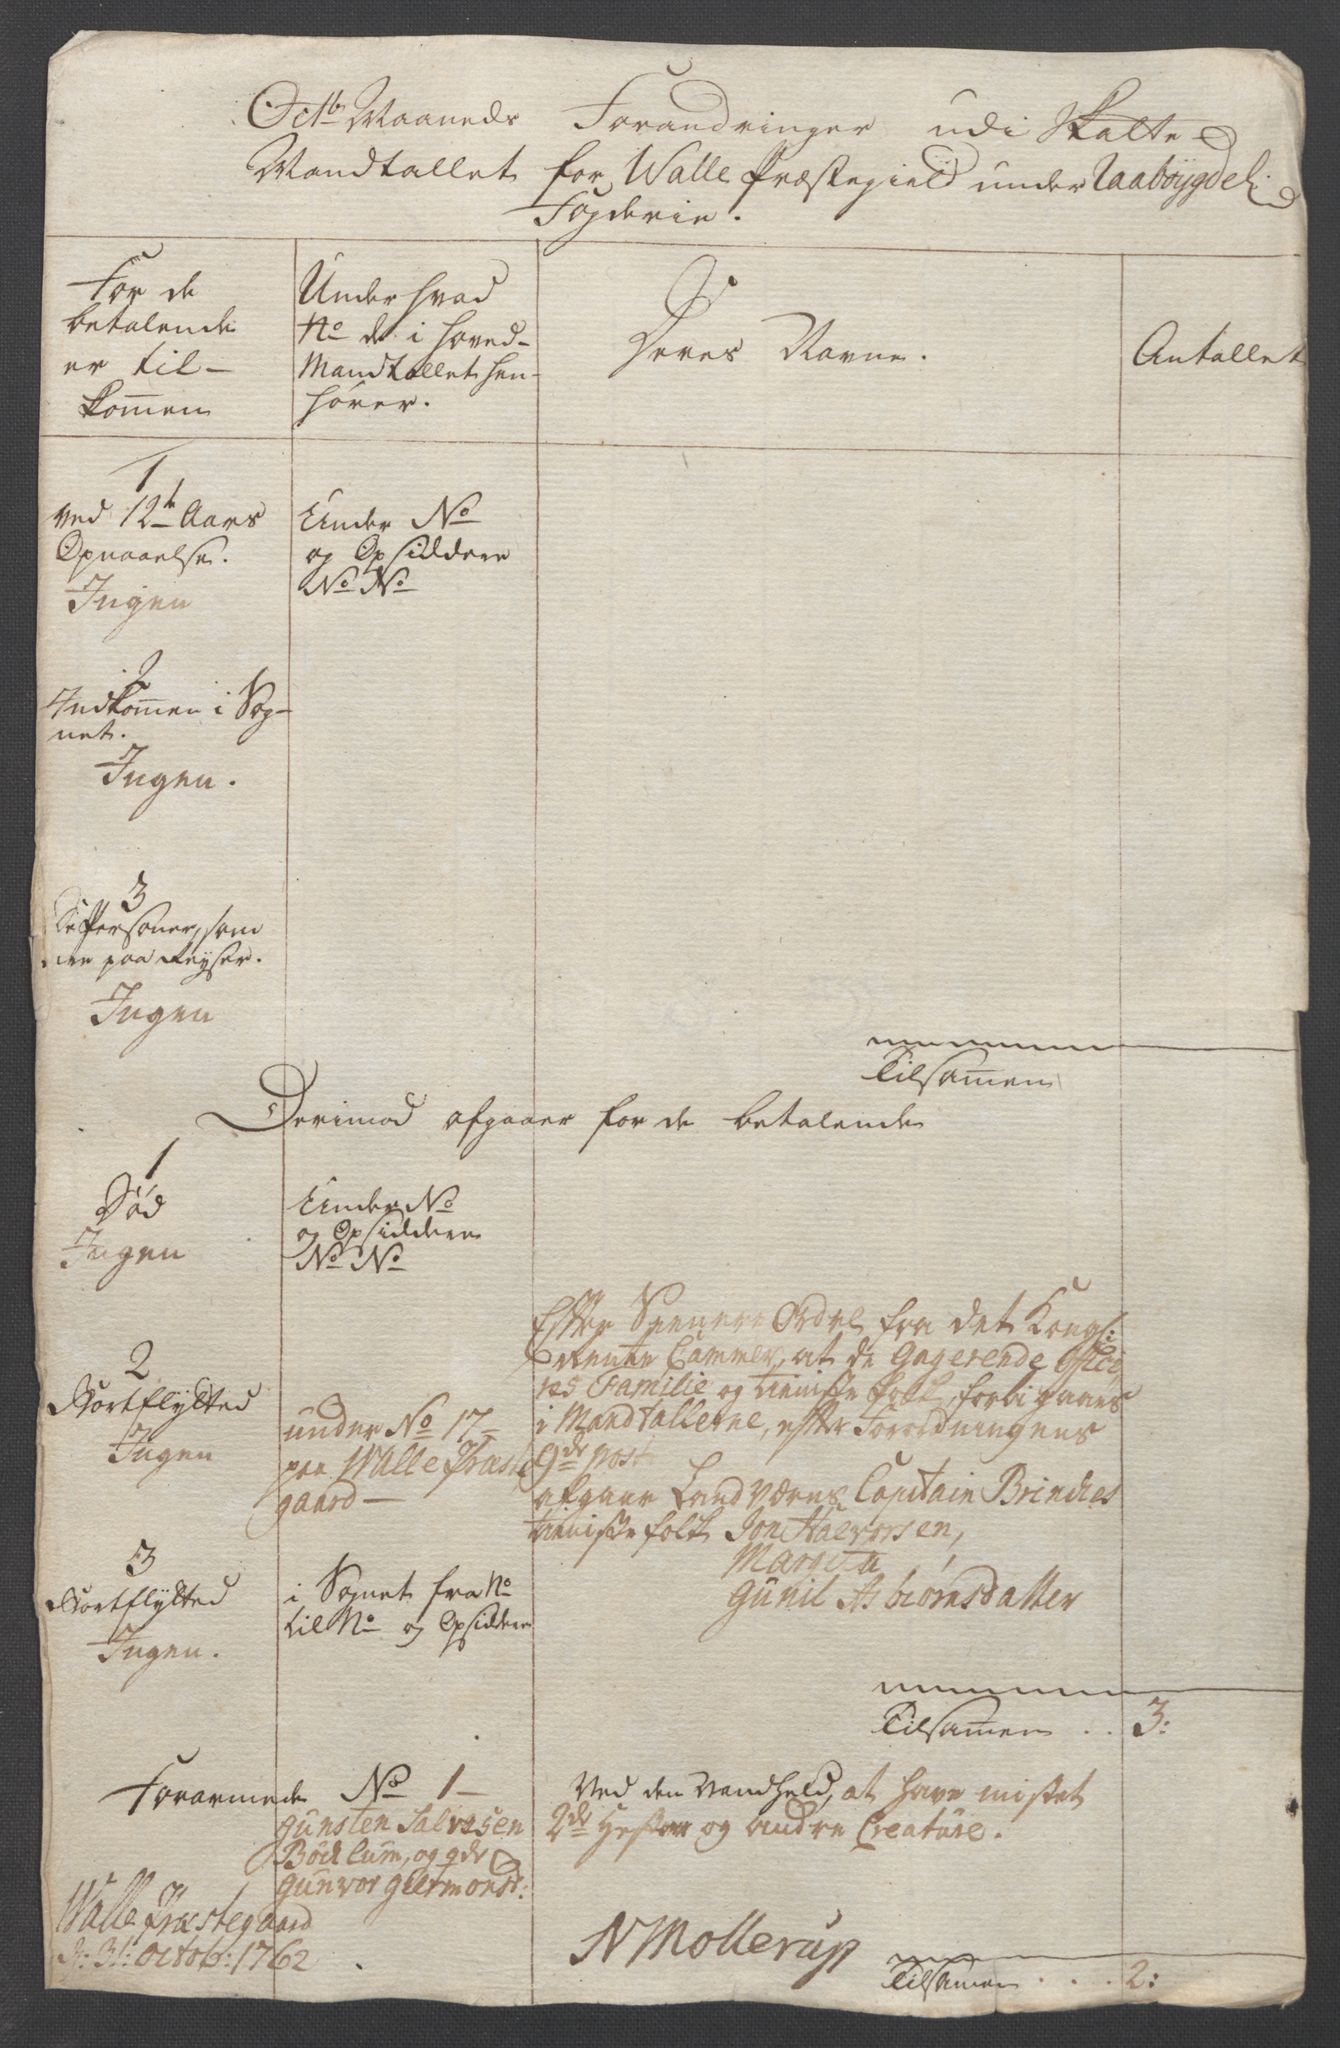 Octb Maaneds Forandringer udi Skatte
Mandtallet for Walle Præstegield under Raabøygdel:
Fogderie.
For de
betalende
er til-
kom̄en
Under hvad
No de i hoved-
Mandtallet hen-
hører.
Deres Navne.
Antallet
1
ved 12te Aars
Opnaaelse.
Ingen
Under No
og Opsiddere
No No
2
Indkom̄en i Sog-
net.
Ingen.
3
De Personer, som
ere paa Reyser.
Ingen
Tilsam̄en
Derimod afgaaer for de betalende
1
Død
Ingen
Under No
og Opsiddere
No No
2
Bortflytted
Ingen
under No 17-
paa Walle Præste
gaard-
Efter Seenere Ordre fra det Kongl:
Rente Cammer, at de Gagerende Offici
res Familie og tieniste folk, forbi gaaes
i Mandtallerne, efter Forordningens
9de post
afgaar Landværns Capitain Brinches
tieniste folk Jon Halvorsen,
Margita,
Gunil Asbiørnsdatter
3
Bortflytted
Ingen.
i Sognet fra No
til No og Opsiddere
Tilsam̄en . . 3:
Forarmede No 1-
Gunsten Salvesen
Bødlum, og qde
Gunvor Giermonsd:
Ved den Vandheld, at have mistet
2de Hester og andre Creature.
Walle Præstegaard
d: 31: Octob: 1762
N Mollerup
Tilsamen . . . 2: